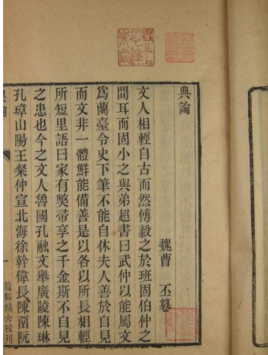 典論
魏曹 丕纂
文人相輕自古而然傅毅之於班固伯仲之
間耳而固小之與弟超書曰武仲以能屬文
為蘭臺令史下筆不能自休夫人善於自見
而文非一體鮮能備善是以各以所長相輕
所短里語曰家有獘帚享之千金斯不自見
之患也今之文人魯國孔融文舉廣陵陳琳
孔璋山陽王粲仲宣北海徐幹偉長陳畱阮
典論